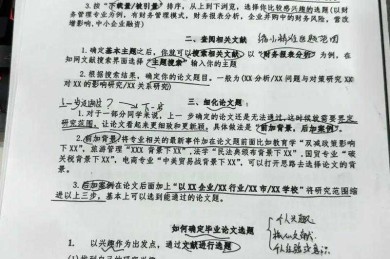 3. 按"下载量/被引量"排序，从上到下浏览，选择你比较感兴趣的选题(以财
务管理专业为例，有财务管理模式，财务报表分析，企业并购中的财务风险，营改
增影响，中小企业融资)
二、查阅相关文献
缩小精准在范围
1. 确定基本主题之后，你就可以搜索相关文献，以"财务报表分析"为例，在
知网文献搜索界面选择"主题搜索"输入你的主题
2. 根据搜索结果，确定你的论文题目，一般为(XX分析/XX问题与对策研究XX
对XX的影响研究/XX关系研究)
三、细化论文题：
1. 对于一部分同学来说，上一步确定的论文还是无法通过，这时候就需要界定
研究范围，让论文看起来更细致和更新颖，具体做法是"前加背景，后加案例"。
2. 前加背景/将专业相关的最新事件加在论文题前面比如教育学"双减政策影响
下XX"，旅游管理"XXX背景下XX"，法学"民法典颁布背景下XX"，国贸专业"碳
关税背景下XX"，电商专业"中美贸易战背景下XX"，可以打开思路去选择论文的背
景。
3. 后加案例在论文后面加上"以XX企业/XX行业/XX市/XX学校"将研究范围缩
进以上三步，基本上可以选到能通过的论文题。
如何确定毕业论文选题
1. 以兴趣作为出发点，通过文献进行选题
个人兴趣